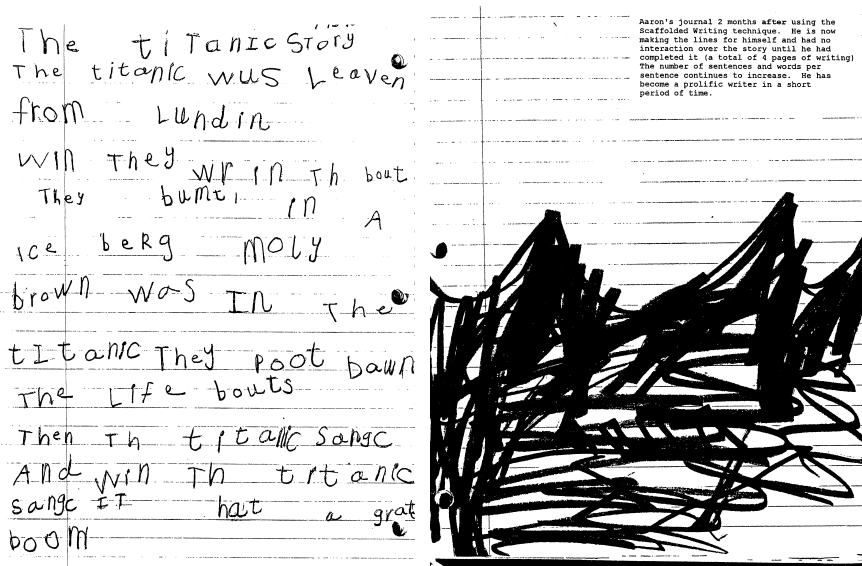 The tiTanic Story
The titanic wus Leaven
from Lundin
win They wr in Th bout
They bumt in A
ice berg moly
brown was In The
tItanic They poot bawn
The Life bouts
Then Th titanic sangc
And win Th titanic
sangc IT hat a grat
boom
Aaron's journal 2 months after using the
Scaffolded Writing technique. He is now
making the lines for himself and had no
interaction over the story until he had
completed it (a total of 4 pages of writing)
The number of sentences and words per
sentence continues to increase. He has
become a prolific writer in a short
period of time.